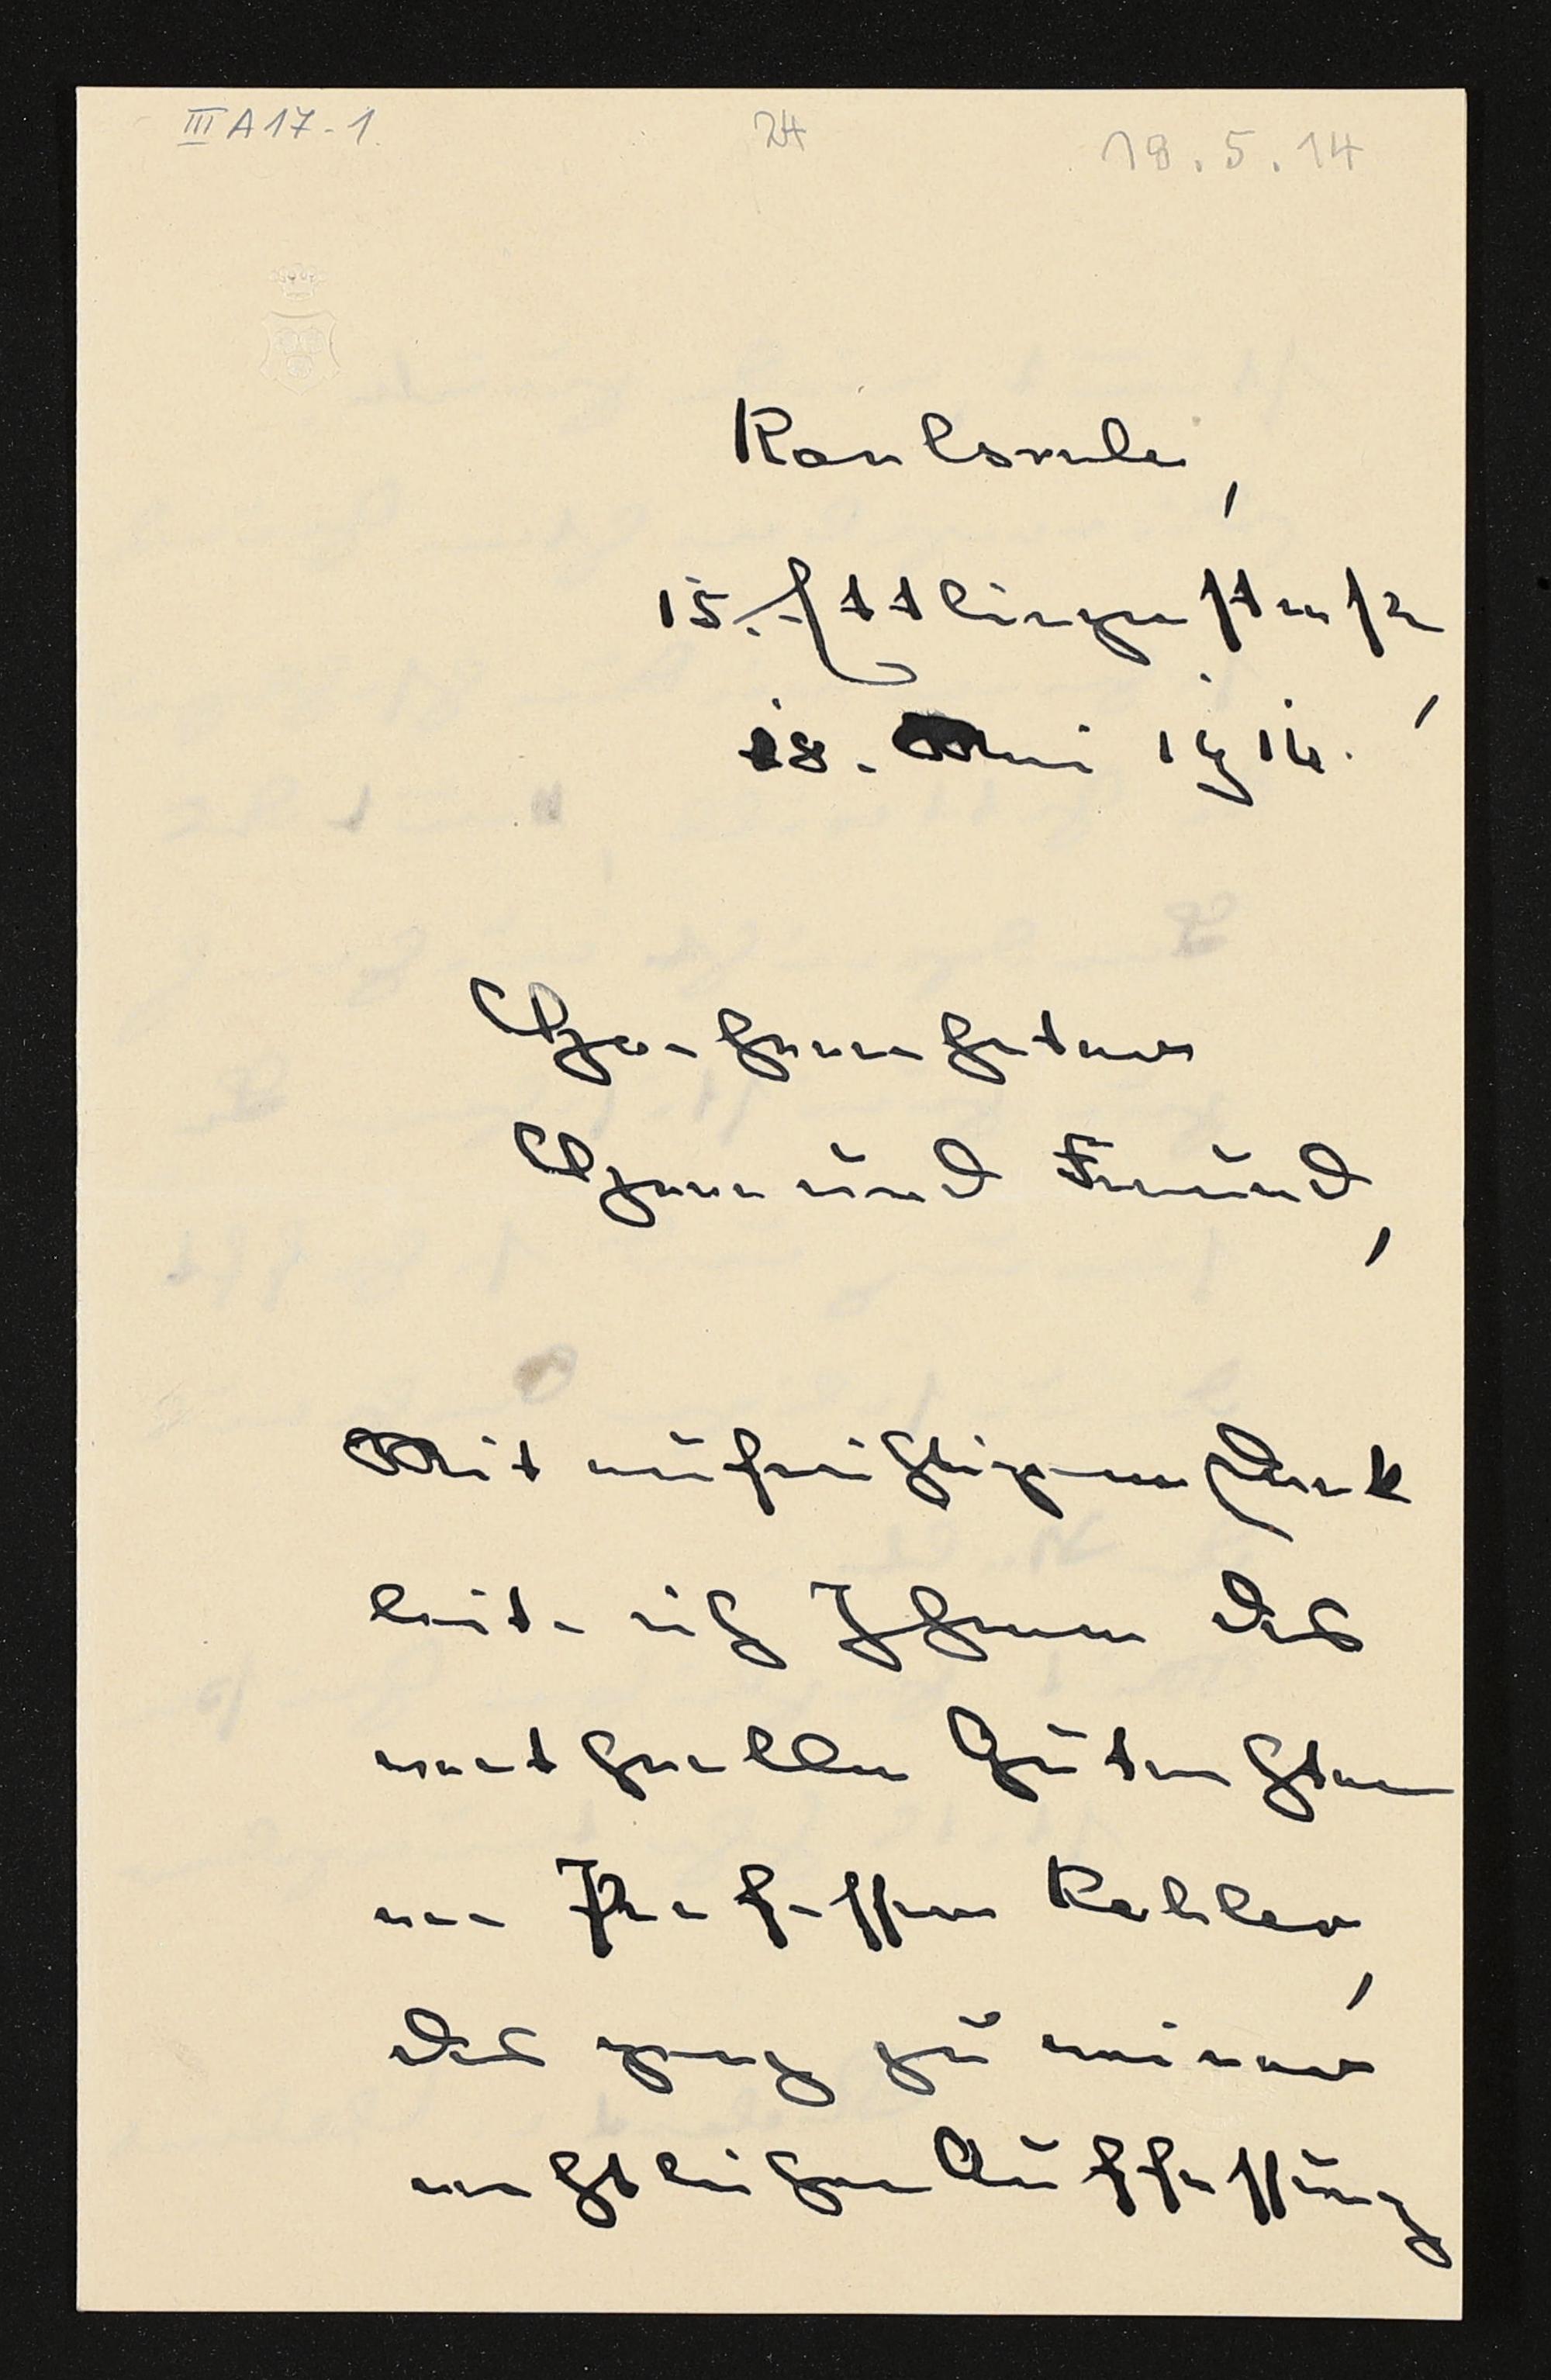 III A 17-1.
24
18.5.14
Karlsruhe,
15. Ettlingerstraße,
18. Mai 1914.
Hochverehrter
Herr und Freund,
Mit aufrichtigem Dank
leite ich Ihnen das
wertvolle Gutachten
von Professor Kohler,
das ganz zu meiner
rechtlichen Auffassung